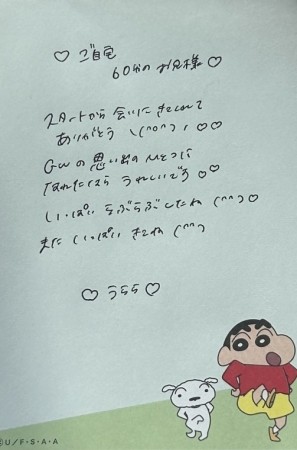 ♡ ご自宅
60分のお兄様 ♡
スタートから 会いにきてくれて
ありがとう \(^o^)/ ♡♡
GWの思い出のひとつに
なれたなら うれしいです ♡♡
いっぱい らぶらぶしたね (^^) ♡
また いっぱい きてね (^^)
♡ うらら ♡
©U/F・S・A・A